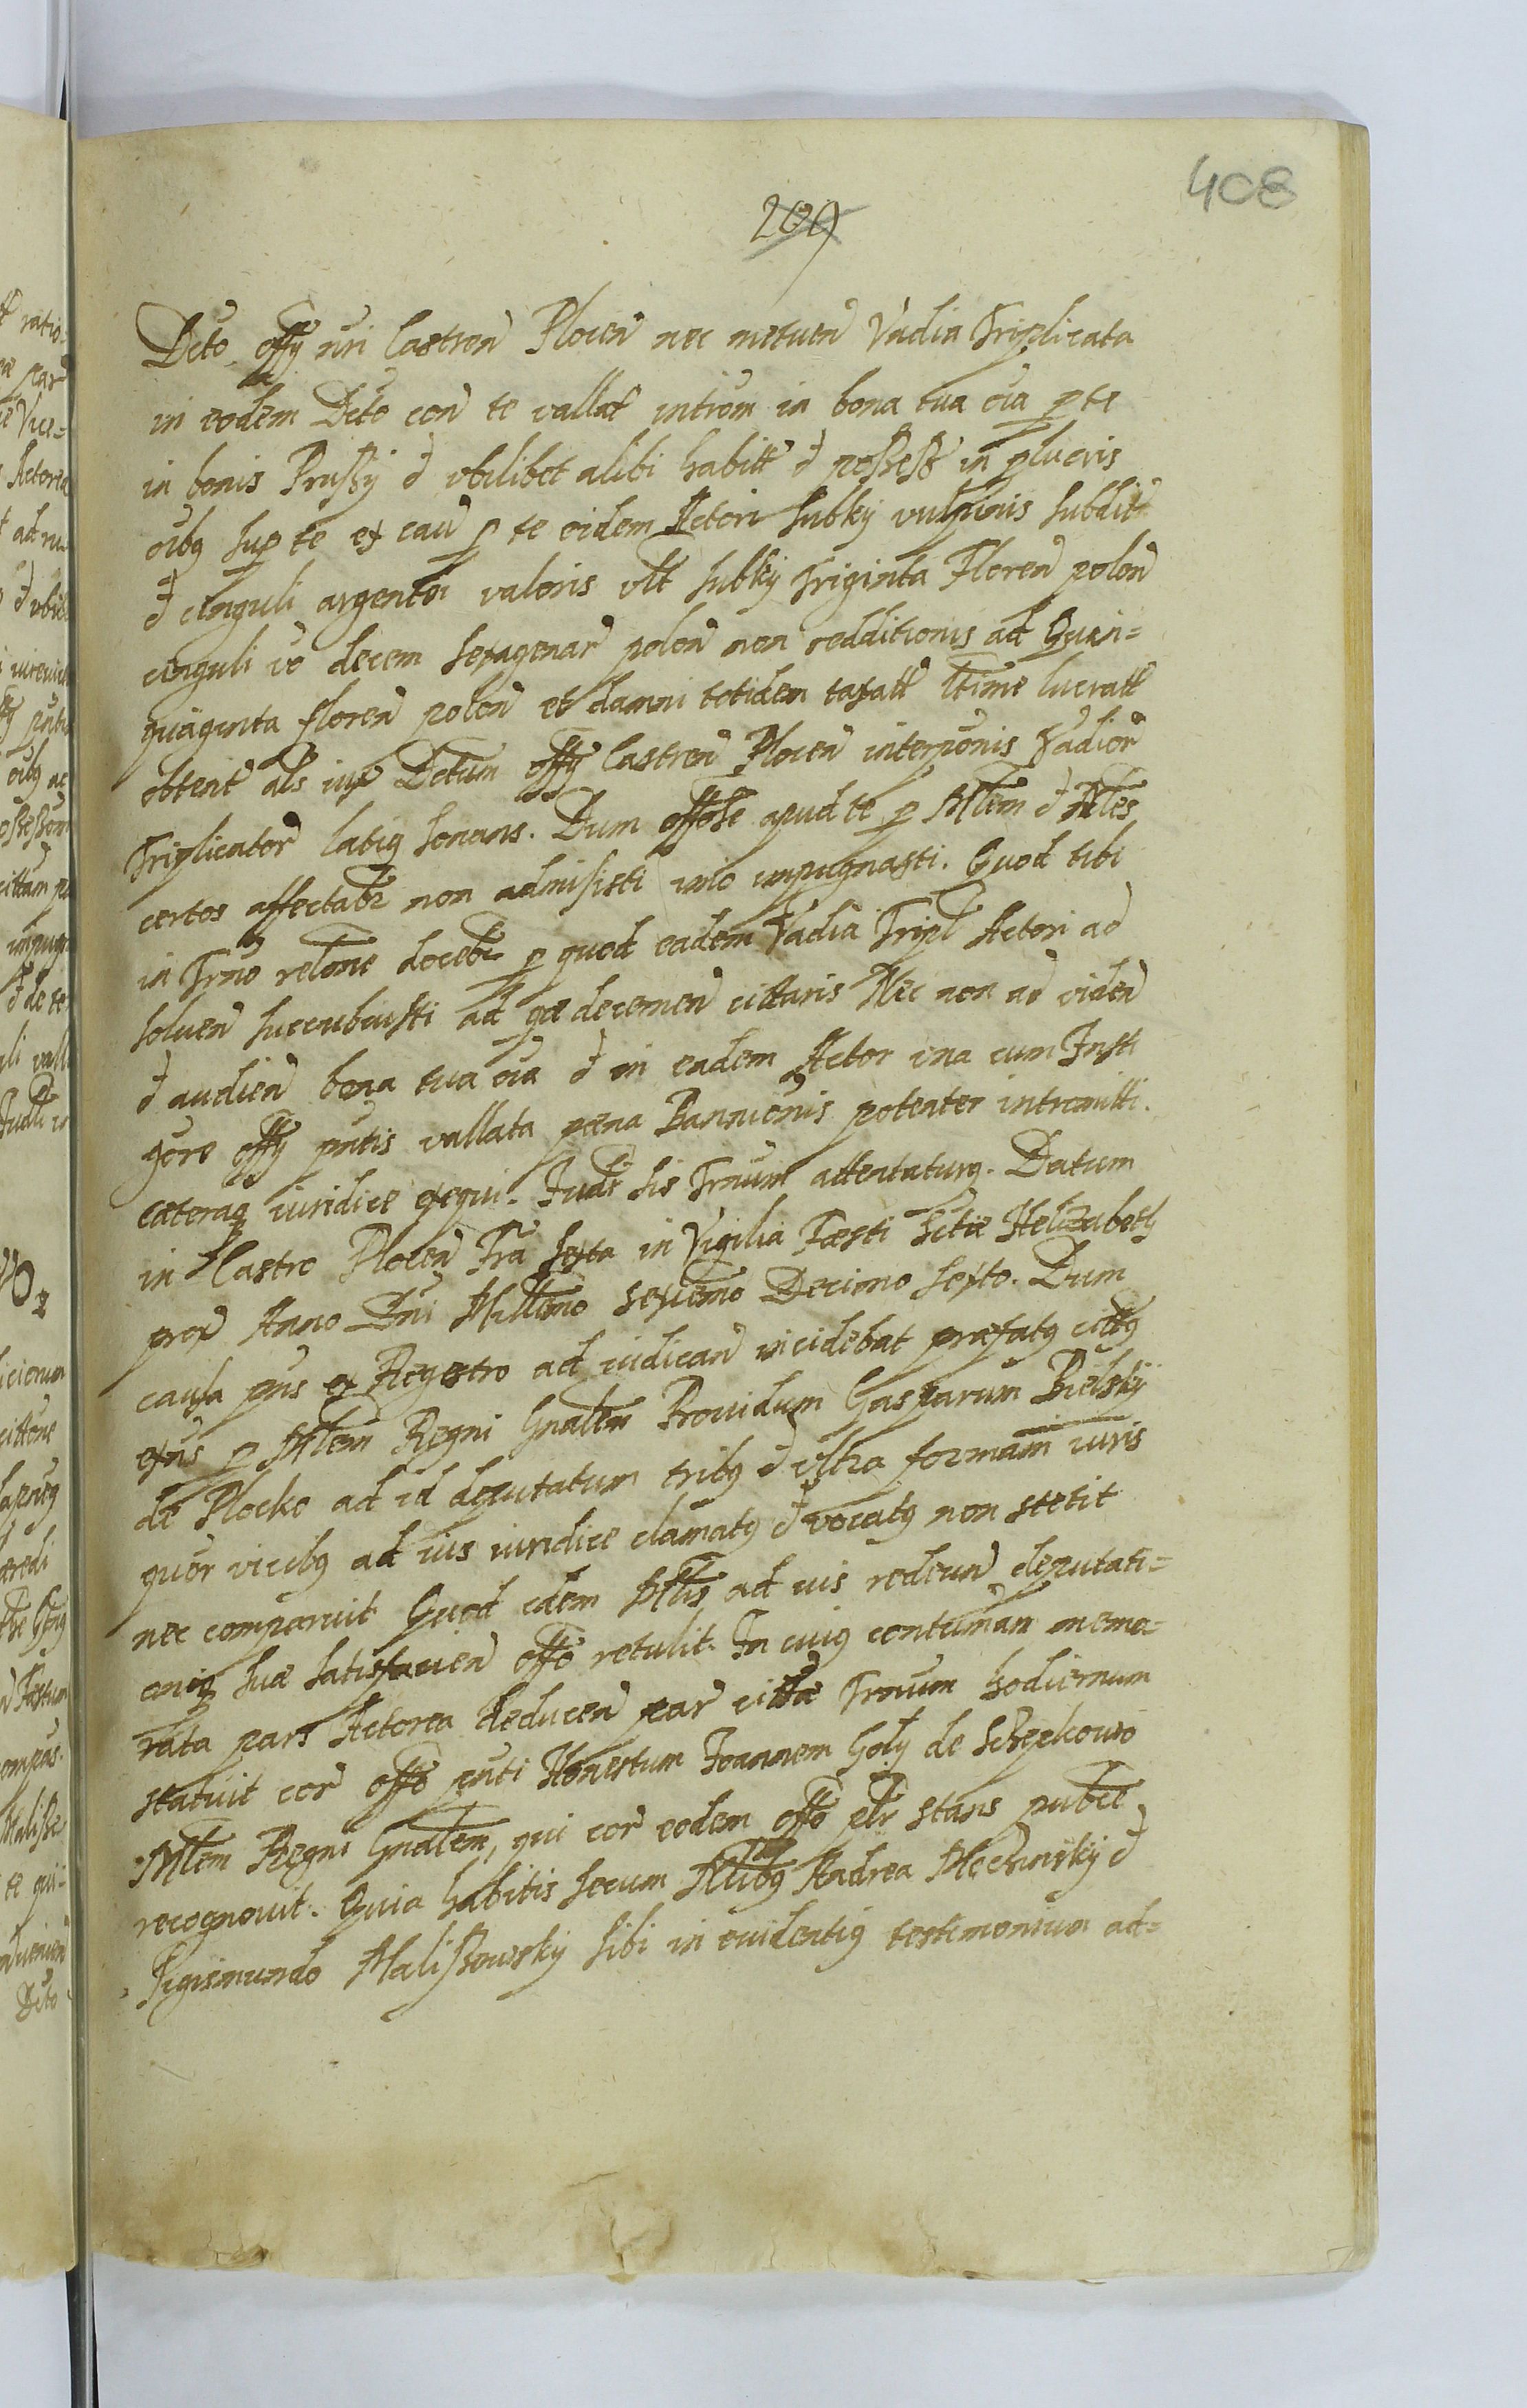 408
209
Dcto offy nri Castren Plocen nec metuen Vadia Triplicata
in eodem Dcto con te vallat introm in bona tua oia p te
in bonis Prussy & vbilibet alibi habitt & possess in pluris
oibq sup te ex cau p te eidem Actori Subky vulpinis subditt
& cinguli argentei valoris vlt subky triginta Floren polon
cinguli vo decem sexagenar polon non redditionis ad Quin=
quaginta floren polon et damni totidem taxatt ltime lucratt
obtent als iux Dctum offy Castren Plocen interponis Vadior
Triplicator latiq sonans. Dum offose apud te p Mlem & Nles
certos affectabr non admisisti imo impugnasti. Quod tibi
in Trno relone docebr p quod eadem Vadia Tripl Actori ad
soluen succubuisti ad quæ decernen cittaris Nec non ad viden
& audien bona tua oia & in eadem Actor vna cum Insti
gore offy pntis vallata pæna Bannionis potenter intromitti.
cæteraq iuridice exequi. Judr sis Trnum attentaturq. Datum
in Castro Plocen Fra sexta in Vigilia Fæsti Sctæ Helizabeth
prox Anno Dni Millmo sexcemo Decimo sexto. Dum
causa pns ex Regestro ad iudican incidebat præfatq cittq
exns p Mlem Regni Gnalem Prouidum Gasparum Bielsky
de Plocko ad id deputatum tribq & vltra formam iuris
quor vicibq ad ius iuridice clamatq & vocatq non stetit
nec comparuit Quod idem Mlis ad ius redeun deputati=
oniq suæ satisfacien offo retulit. In cuiq contumam memo=
rata pars Actorea deducen par cittæ Trnum hodiernum
statuit cor offo pnti Honestum Joannem Goly de
Mlem Regni Gnalem, qui cor eodem offo plr stans publce
recognouit. Quia habitis secum Nlibq Andrea Mlechowsky &
Sigismundo Malissewsky sibi in euidentiq testimonium ad=